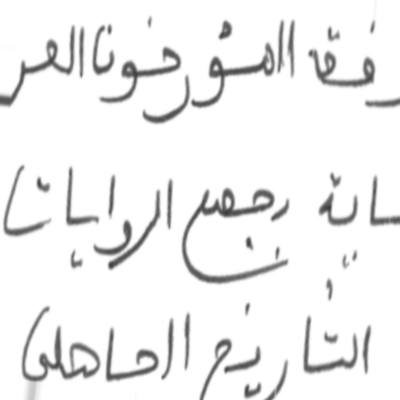 وفقا المؤرخون العر
ساية رجمع الروايات
التاريخ الجاهلي